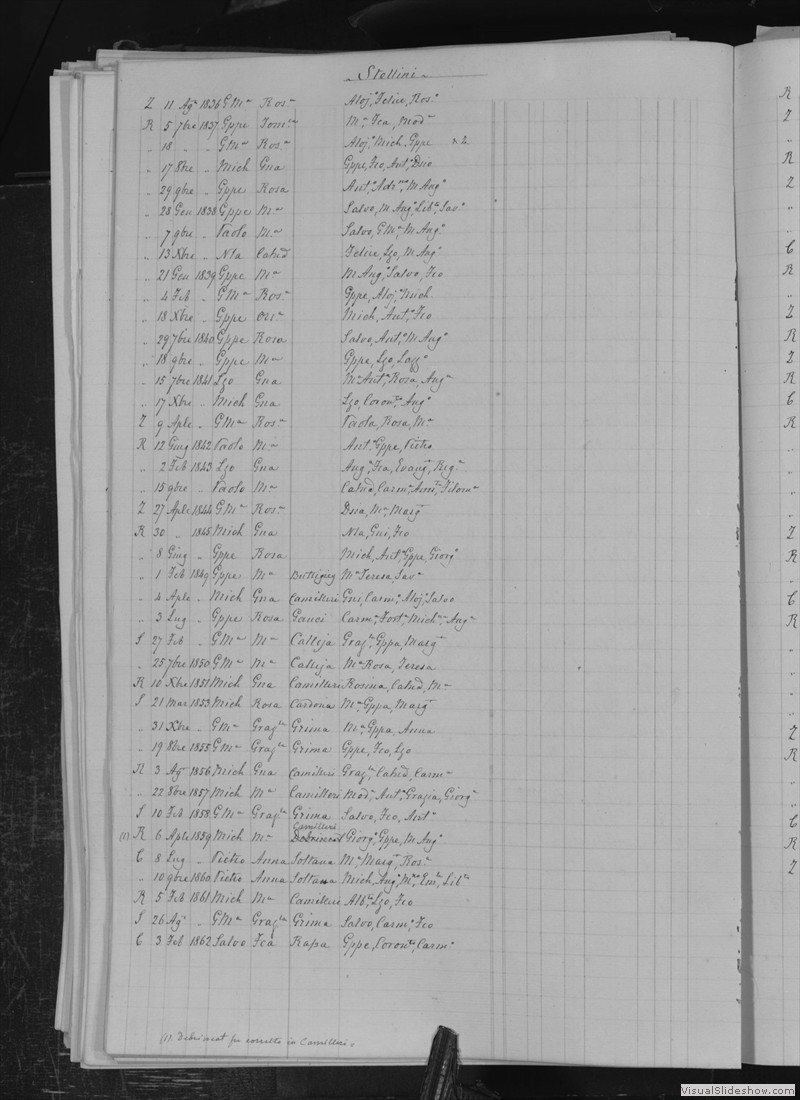 Stellini
Z 11 Agto 1836 GMa Rosa Aloj, Felice, Rosa
R 5 7bre 1837 Gppe Ma Fca, Moda
„ 18 „ „ GMa Rosa Aloja Mich, Gppe n. 2.
„ 17 8bre „ Mich Gna Gppe, Fco, Anto, Dno
„ 29 9bre „ Gppe Rosa Anta M Anga
„ 28 Gen 1838 Gppe Ma Salvo, M Anga Liba, Sava
„ 7 9bre „ Paolo Ma Salvo, GMa, M Anga
„ 13 Xbre „ Nla Catrid Felice, Lzo, M Anga
„ 21 Gen 1839 Gppe Ma M Anga Salvo, Fco
„ 4 Feb „ GMa Rosa Gppe, Aloj, Mich.
„ 18 Xbre „ Gppe Mich, Anta, Fco
„ 29 7bre 1840 Gppe Rosa Salvo, Anta, M Anga
„ 18 9bre „ Gppe Ma Gppe, Lzo,
„ 15 7bre 1841 Lzo Gna Ma Anta Rosa, Anga
„ 17 Xbre „ Mich Gna Lzo, Coronta, Anga
Z 9 Aple „ GMa Rosa Paola, Rosa, Ma
R 12 Giug 1842 Paolo Ma Anta Gppe, Pietro
„ 2 Feb 1843 Lzo Gna Anga, Fca, Evanga, Rega
„ 15 9bre „ Paolo Ma Catrid, Carma, Filoma
Z 27 Aple 1844 GMa Rosa Dnia, Ma, Marga
R 30 „ 1845 Mich Gna Nla, Gni, Fco
„ 8 Giug „ Gppe Rosa Mich, Anta Gppe, Giorga
„ 1 Feb 1849 Gppe Ma Buttigieg Ma Teresa, Sava
„ 4 Aple „ Mich Gna Camilleri Gni, Carma, Aloj, Salvo
„ 3 Lug „ Gppe Rosa Gauci Carma, Forta, Micha, Anga
S 27 Feb „ GMa Ma Calleja Graza, Gppa, Marga
„ 25 7bre 1850 GMa Ma Calleja Ma Rosa, Teresa
R 10 Xbre 1851 Mich Gna Camilleri Rosina, Catrid, Ma
S 21 Mar 1853 Mich Rosa Cardona Ma Gppa, Marga
„ 31 Xbre „ GMa Graza Grima Ma Gppa, Anna
„ 19 8bre 1855 GMa Graza Grima Gppe, Fco, Lzo
R 3 Ago 1856 Mich Gna Camilleri Graza, Catrid, Carma
„ 22 8bre 1857 Mich Ma Camilleri Moda, Anta, Grazia, Giorga
S 10 Feb 1858 GMa Graza Grima Salvo, Fco, Anta
Camilleri
(1) R 6 Aple 1859 Mich Ma Debrincat Giorga, Gppe, M Anga
C 8 Lug „ Pietro Anna Soltana Ma Marga, Rosa
„ 10 9bre 1860 Pietro Anna Soltana Mich, Anga, Ma, Ema, Liba
R 5 Feb 1861 Mich Ma Camilleri Alba, Lzo, Fco
S 26 Ago „ GMa Graza Grima Salvo, Carma, Fco
C 3 Feb 1862 Salvo Fca Rapa Gppe, Coronta, Carma
(1). Debrincat fu corretto in Camilleri.
VisualSlideshow.com